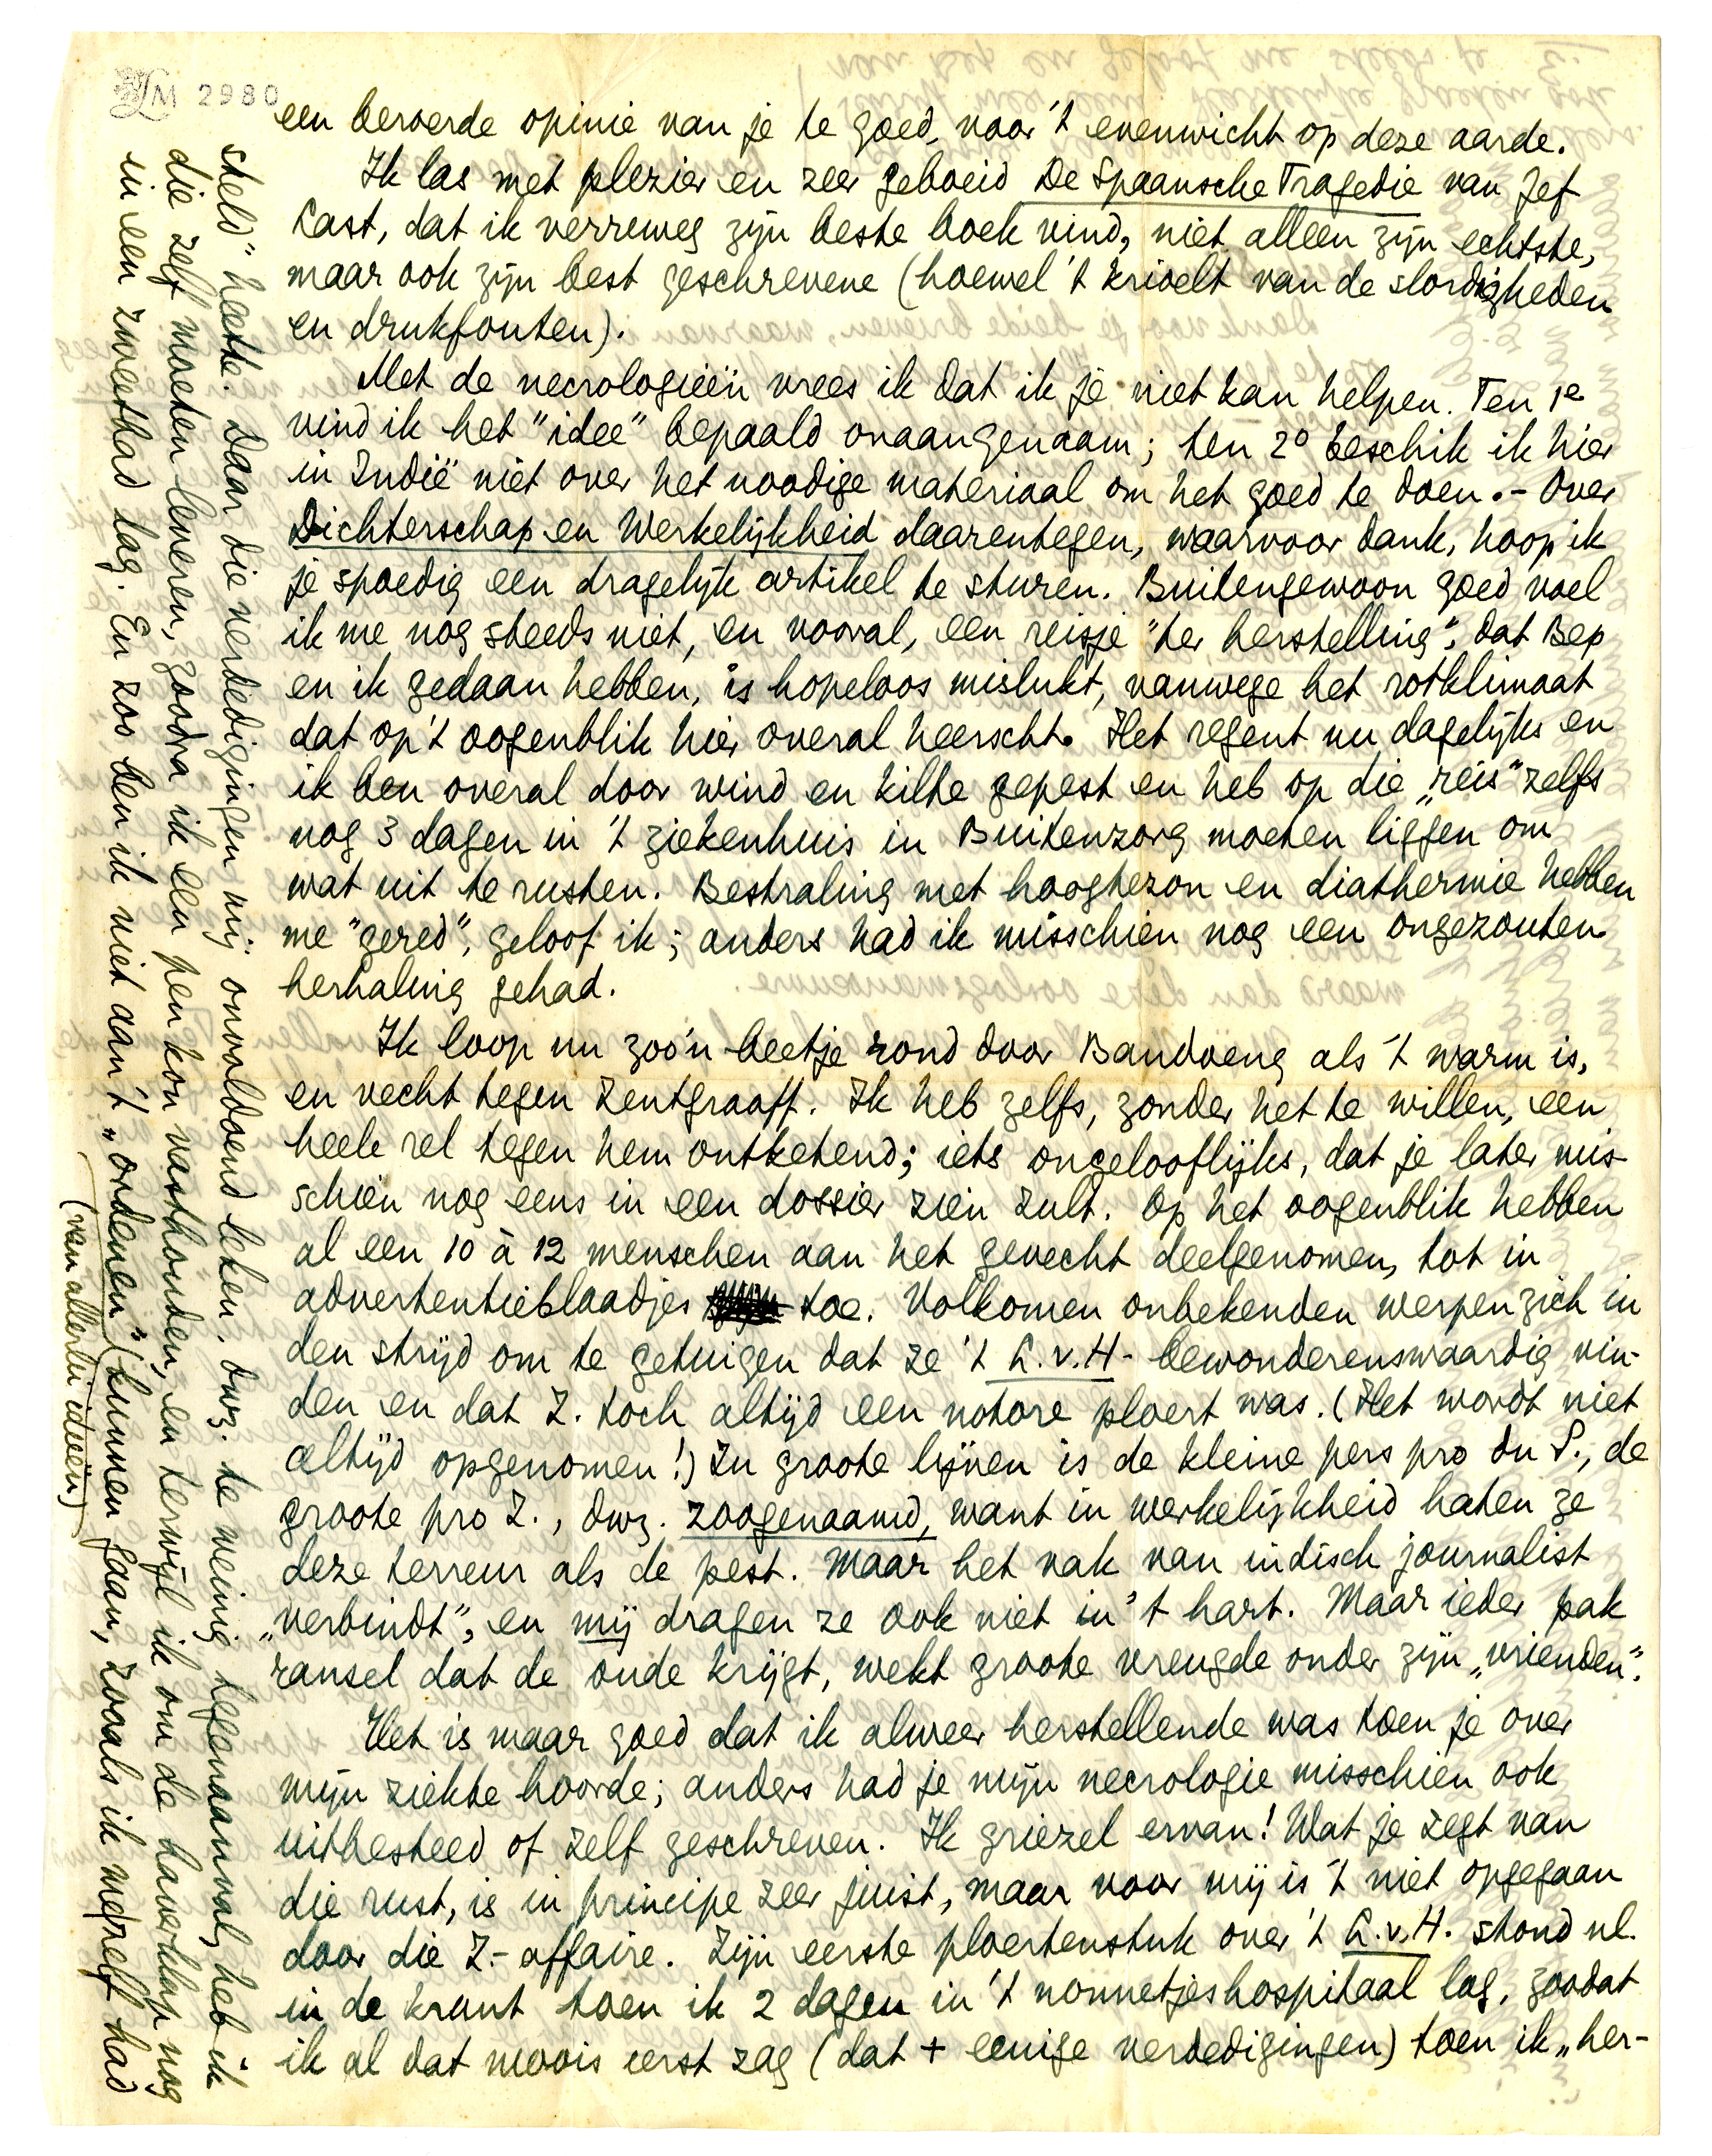 LM 2980
een beroerde opinie van je te goed, voor 't evenwicht op deze aarde.
Ik las met plezier en zeer geboeid De Spaansche Tragedie van Jef
Last, dat ik verreweg zijn beste boek vind, niet alleen zijn echtste,
maar ook zijn best geschrevene (hoewel 't krioelt van de slordigheden
en drukfouten).
Met de necrologieën vrees ik dat ik je niet kan helpen. Ten 1e
vind ik het "idee" bepaald onaangenaam; ten 2o beschik ik hier
in Indië niet over het noodige materiaal om het goed te doen.- Over
Dichterschap en Werkelijkheid daarentegen, waarvoor dank, hoop ik
je spoedig een dragelijk artikel te sturen. Buitengewoon goed voel
ik me nog steeds niet, en vooral, een reisje "ter herstelling", dat Bep
en ik gedaan hebben, is hopeloos mislukt, vanwege het rotklimaat
dat op 't oogenblik hier overal heerscht. Het regent nu dagelijks en
ik ben overal door wind en kilte gepest en heb op die „reis" zelfs
nog 3 dagen in 't ziekenhuis in Buitenzorg moeten liggen om
wat uit te rusten. Bestraling met hoogtezon en diathermie hebben
me "gered", geloof ik; anders had ik misschien nog een ongezouten
herhaling gehad.
Ik loop nu zoo'n beetje rond door Bandoeng als 't warm is,
en vecht tegen Zentgraaff. Ik heb zelfs, zonder het te willen, een
heele rel tegen hem ontketend; iets ongelooflijks, dat je later mis-
schien nog eens in een dossier zien zult. Op het oogenblik hebben
al een 10 à 12 menschen aan het gevecht deelgenomen, tot in
advertentieblaadjes toe. Volkomen onbekenden werpen zich in
den strijd om te getuigen dat ze 't L.v.H- bewonderenswaardig vin-
den en dat Z. toch altijd een notore ploert was. (Het wordt niet
altijd opgenomen!) In groote lijnen is de kleine pers pro du P., de
groote pro Z., dwz. zoogenaamd, want in werkelijkheid haten ze
deze terreur als de pest. Maar het vak van indisch journalist
„verbindt", en mij dragen ze ook niet in 't hart. Maar ieder pak
ransel dat de oude krijgt, wekt groote vreugde onder zijn „vrienden".
Het is maar goed dat ik alweer herstellende was toen je over
mijn ziekte hoorde; anders had je mijn necrologie misschien ook
uitbesteed of zelf geschreven. Ik griezel ervan! Wat je zegt van
die rust, is in principe zeer juist, maar voor mij is 't niet opgegaan
door die Z.- affaire. Zijn eerste ploertenstuk over 't L.v.H. stond nl.
in de krant toen ik 2 dagen in 't nonnetjeshospitaal lag, zoodat
ik al dat moois eerst zag (dat + eenige verdedigingen) toen ik „her-
steld" heette. Daar die verdedigingen mij onvoldoend leken, dwz. te weinig tegenaanval, heb ik
die zelf moeten leveren, zoodra ik een pen kon vasthouden, en terwijl ik om de haverklap nog
in een zweetbad lag. En zoo ben ik niet aan 't „ordenen" (kunnen gaan, zooals ik mezelf had
(van allerlei ideeën)